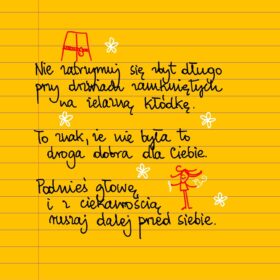 Nie zatrzymuj się zbyt długo
przy drzwiach zamkniętych
na żelazną kłódkę.
To znak, że nie była to
droga dobra dla Ciebie.
Podnieś głowę
i z ciekawością
ruszaj dalej przed siebie.